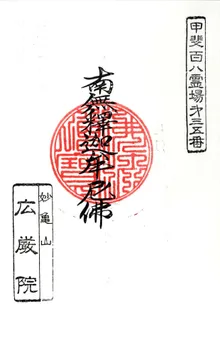 甲斐百八霊場第三五番
南無釋迦牟尼佛
妙亀山
広厳院